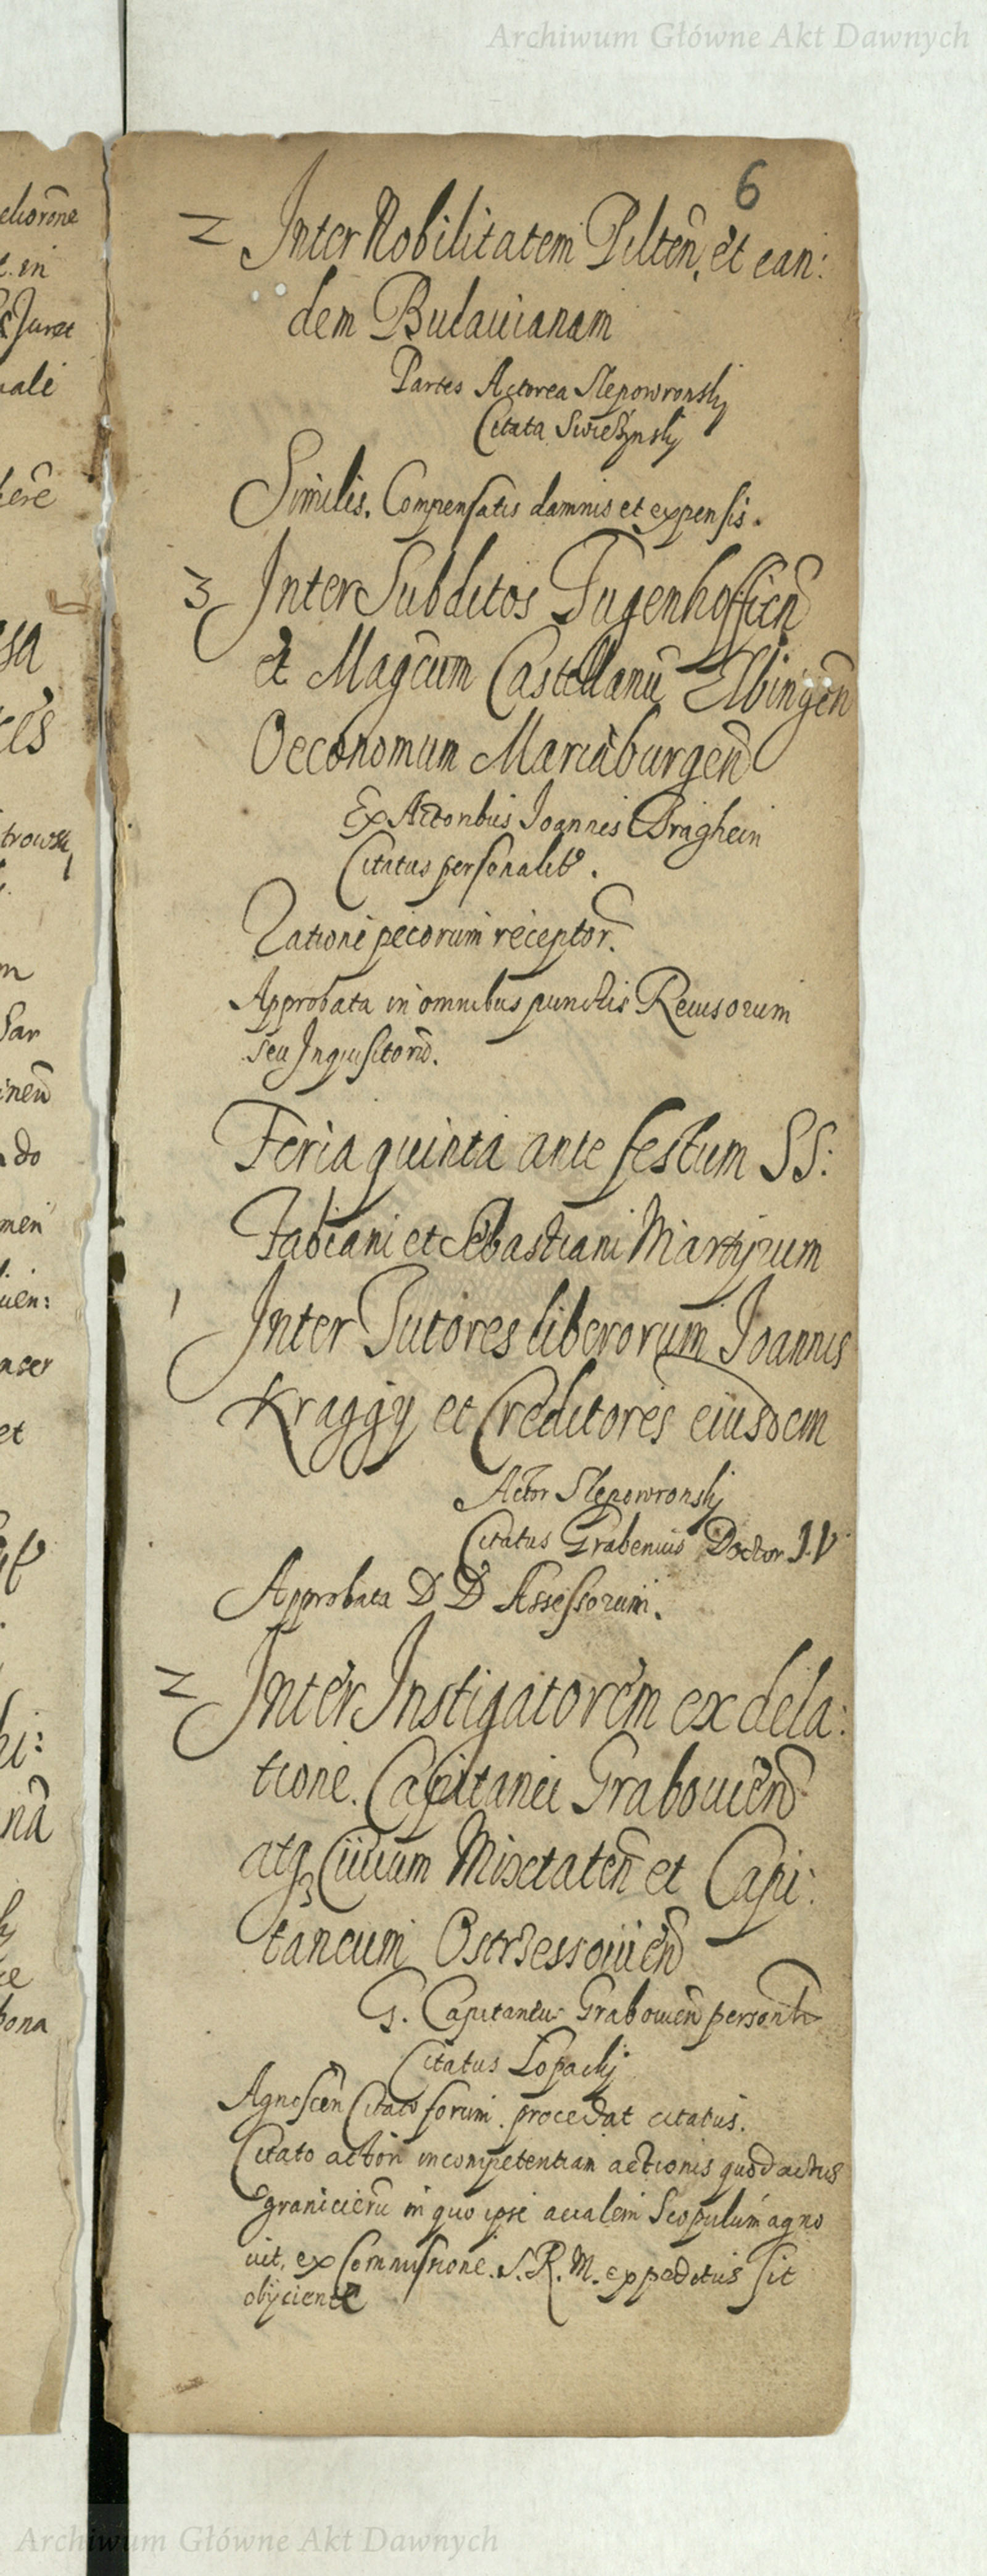 Archiwum Główne Akt Dawnych
6
2 Inter Nobilitatem Pilten, et ean:
dem Butauianam
Partes Actorea Slepowronskj
Citata Swieżynskj
Similis. Compensatis damnis et expensis.
3 Inter Subditos Tugenhofficen
et Magcum Castellanū Elbingen
Oeconomum Mariaburgen
Ex Actoribus Joannes Braghein
Citatus personalitr.
Rationi pecorum receptor.
Approbata in omnibus punctis Reuisorum
seu Inquisitorū.
Feria quinta ante festum SS:
Fabiani et Sebastiani Martyrum
1 Inter Tutores liberorum Joannis
Kraggy et Creditores eiusdem
Actor Slepowronskj
Citatus Grabenius Doctor J.V
Approbata D D Assessorum.
2 Inter Instigatorem ex dela:
tione. Capitanei Grabouien
atq3 Ciuium Mixtaten et Capi:
taneum Ostrzessouien
G. Capitaneus Grabouien personlr
Citatus Lopackj
Agnoscen Citatō forum. procedat citatus.
Citato actōri incompetentiam actionis quod actus
granicierū in quo ipse aualem Scopulum agno
uit, ex Commissione. S.R.M. expeditus sit
obijciente
Archiwum Główne Akt Dawnych